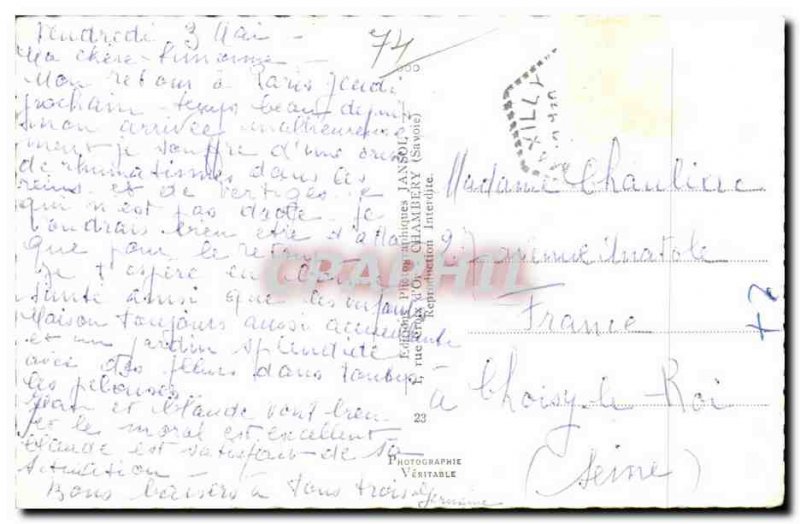 Vendredi 3 Mai -
Ma chère Simone -
Mon retour à Paris Jeudi
prochain - temps beau depuis
mon arrivée malheureuse
ment je souffre d'une crise
de rhumatismes dans les
reins et de vertiges ce
qui n'est pas drole. Je
voudrais bien être d'aplomb
que pour le retour
Je t'espère en bonne
santé ainsi que les enfants
Maison toujours aussi accueillante
et un jardin splendide
avec des fleurs dans toutes
les pelouses.
Jean et Claude vont bien
et le moral est excellent
Claude est satisfait de sa
situation -
Bons baisers à tous trois
Germaine
74
Editions Photographiques JANSOL
1, rue Croix d'Or, CHAMBÉRY (Savoie)
Reproduction Interdite.
23
PHOTOGRAPHIE
VÉRITABLE
CPAPHIL
Madame Chauliac
27 avenue Anatole
France
à Choisy-le-Roi
(Seine)